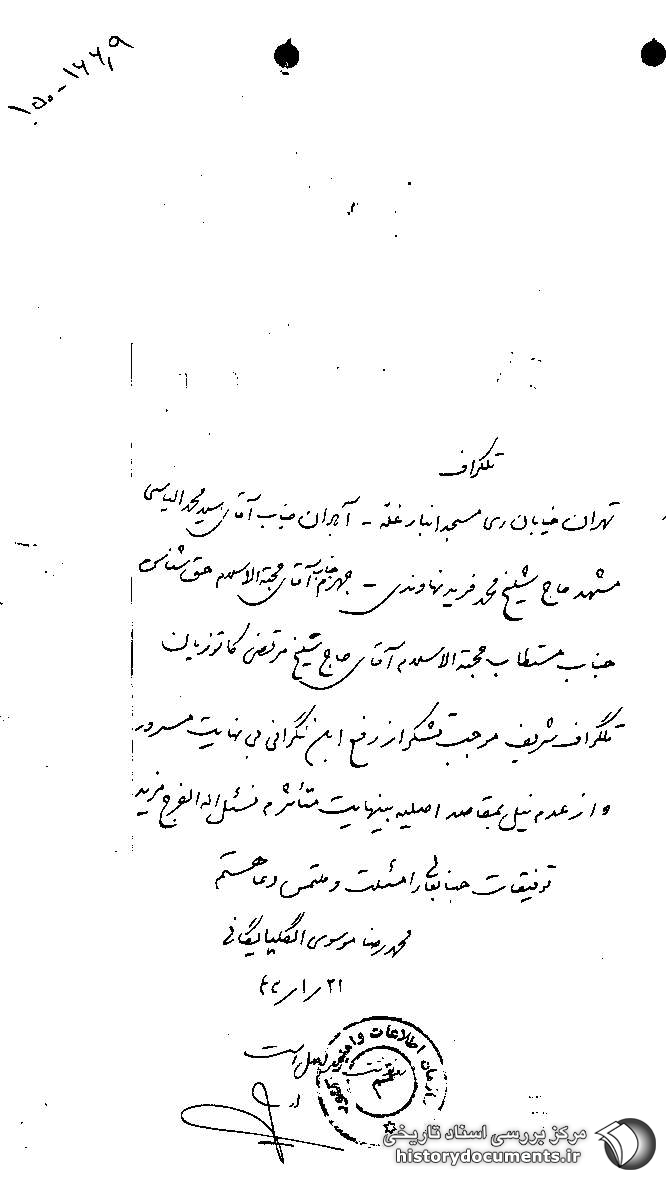 ۱۵۰-۱۶۶۹
تلگراف
تهران خیابان ری مسجد انبار غله - آبران جناب آقای سید محمد الیاسی
مشهد حاج شیخ محمد فرید نهاوندی - جهرم جناب آقای حجةالاسلام حق شناس
جناب مستطاب حجةالاسلام آقای حاج شیخ مرتضی کاتوزیان
تلگراف شریف موجب تشکر از رفع این نگرانی بی نهایت مسرور
و از عدم نیل بمقاصد اصلیه بینهایت متأثرم نسئل اله الفرج مزید
توفیقات جنابعالی را مسئلت و ملتمس دعا هستم
محمد رضا موسوی الگلپایگانی
سازمان اطلاعات و امنیت
اصل است
مرکز بررسی اسناد تاریخی
historydocuments.ir